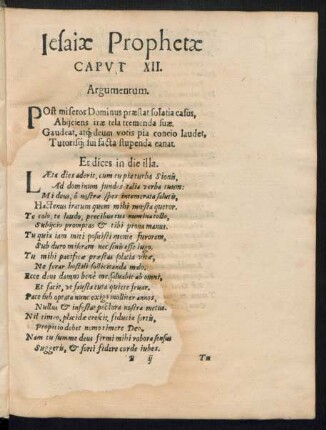 Iesaiæ Prophetæ
CAPVT XII.
Argumentum.
POst miseros Dominus præstat solatia casus,
Abijciens iræ tela tremenda suæ.
Gaudeat, atq; deum votis pia concio laudet,
Tutorisq; sui facta stupenda canat.
Et dices in die illa.
LÆta dies aderit, cum turpiturba Sionis,
Ad dominum fundes talia verba tuum:
Mi deus, ô nostræ spes intemerata salutis,
Hactenus iratum quem mihi mœsta queror.
Te colo, te laudo, precibus tua numina tollo,
Subijcio promptas & tibi prona manus.
Tu quia iam miti posuisti mente furorem,
Sub duro miseram nec sinis esse iugo.
Tu mihi pacificæ præstas solatia vitæ,
Ne ferar hostili sollicitanda malo.
Ecce deus danqui bonus me subducit ab omni,
Et facit, vt fausta tuta quiete fruar.
Pace sub optata nunc exigo molliter annos,
Nullus & infestat pectora nostra metus.
Nil timeo, placidæ crescit fiducia sortis,
Propicio debet nemo timere Deo.
Nam tu summe deus firmi mihi roboris sensus
Suggeris, & forti fidere corde iubes.
B ij
Tu